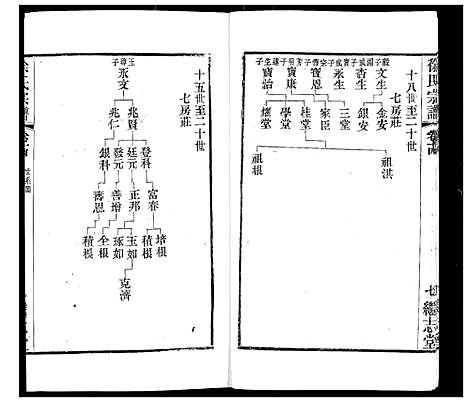 徐氏宗譜
卷十四
七
繼志堂
十八世至二十世
七房莊
毅子 文生 金安 祖洪
子 杏生 銀安
成子 永生 三堂
家子 寶恩 家臣
宗子 寶康 桂堂 祖根
學堂
生子 寶治 燦堂
十五世至二十世
七房莊
玉璋子
永文
兆賢
登科
富春
培根
積根
廷元
正邦
玉如
克濟
琢如
發元
善增
全根
壽恩
積根
兆仁
銀科